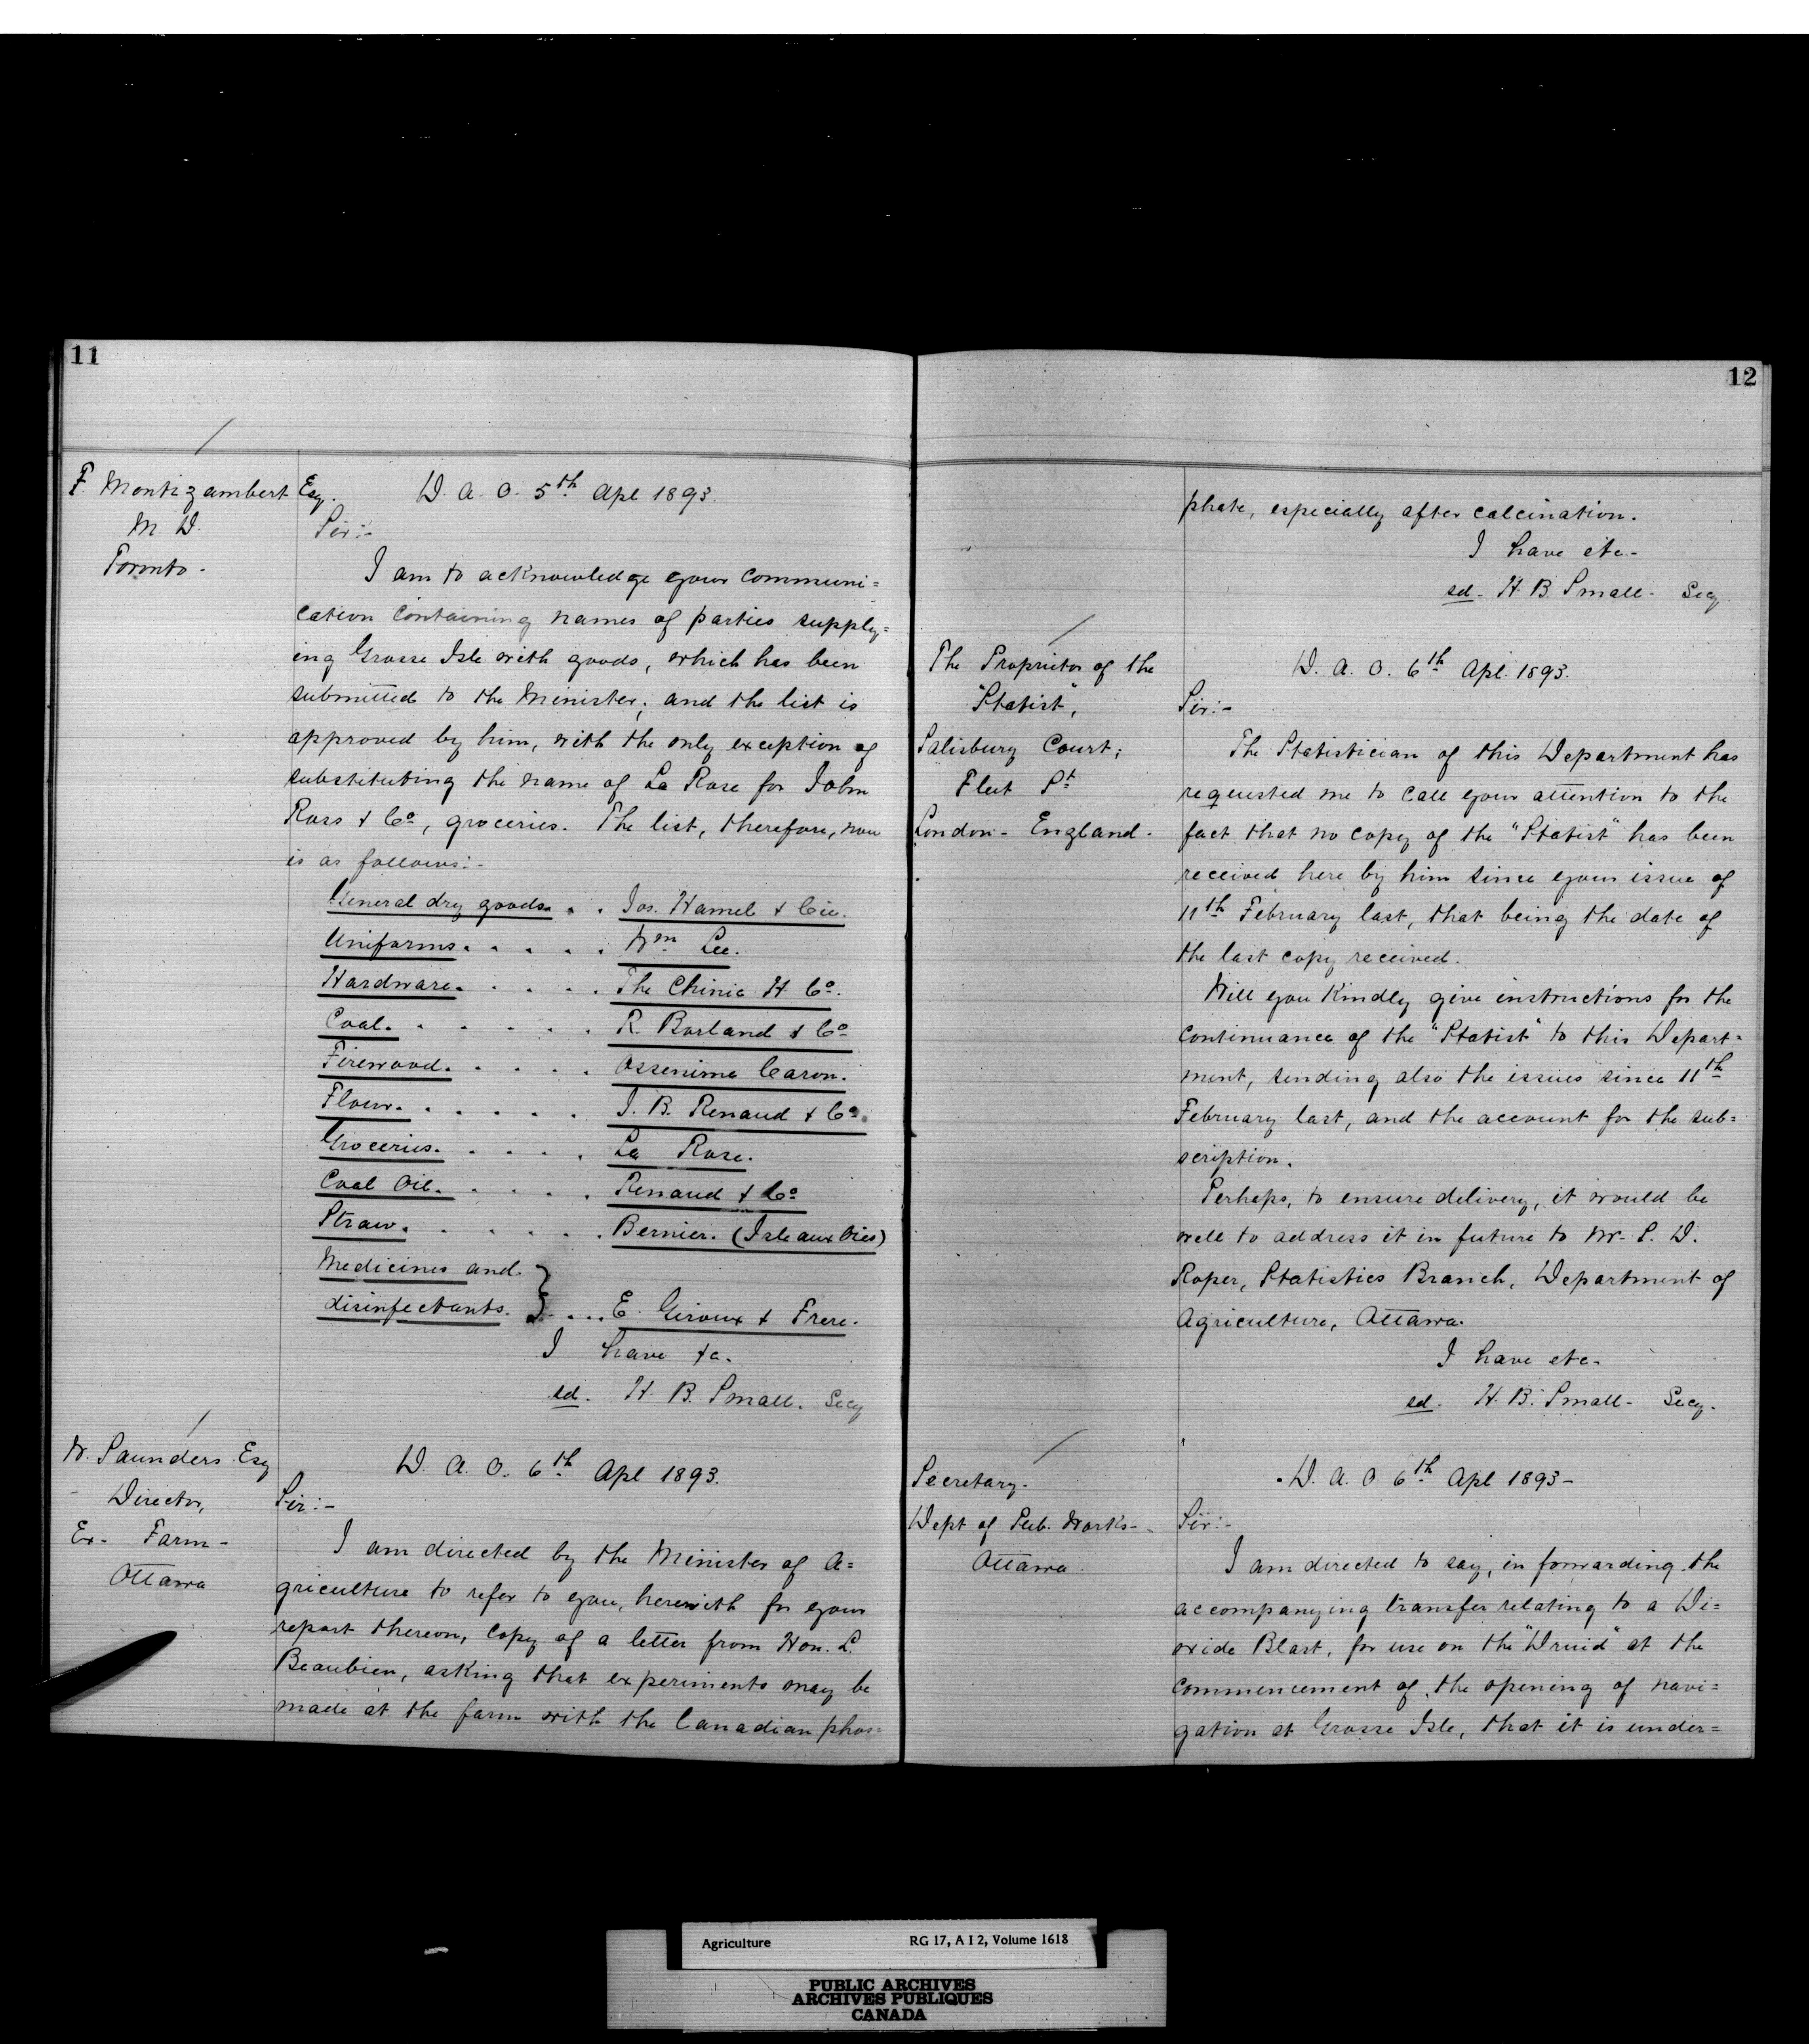 11
F. Montizambert Esq.
M. D.
Toronto.
D. A. O. 5th Apl 1893.
Sir:-
I am to acknowledge your communi=
cation containing names of parties supply=
ing Grosse Isle with goods, which has been
submitted to the Minister; and the list is
approved by him, with the only exception of
substituting the name of La Rose for John
Ross & Co, groceries. The list, therefore, now
is as follows:-
General dry goods. . . Jos. Hamel & Cie.
Uniforms. . . . . . Wm Lee.
Hardware. . . . . The Chinic H. Co.
Coal. . . . . . . R. Borland & Co
Firewood. . . . . . Ossenime Caron.
Flour. . . . . . . J. B. Renaud & Co.
Groceries. . . . . . La Rose.
Coal Oil. . . . . . Renaud & Co
Straw. . . . . . . Bernier. (Isle aux Oies)
Medicines and
disinfectants. } . . . E. Giroux & Frere.
I have &c.
sd. H. B. Small. Secy
W. Saunders Esq
Director,
Ex- Farm-
Ottawa
D. A. O. 6th Apl 1893.
Sir:-
I am directed by the Minister of A=
griculture to refer to you, herewith for your
report thereon, copy of a letter from Hon. L.
Beaubien, asking that experiments may be
made at the farm with the Canadian phos=
12
phate, especially after calcination.
I have etc-
sd- H. B. Small- Secy
The Proprietor of the
"Statist",
Salisbury Court;
Fleet St
London- England-
D. A. O. 6th Apl. 1893.
Sir:-
The Statistician of this Department has
requested me to call your attention to the
fact that no copy of the "Statist" has been
received here by him since your issue of
11th February last, that being the date of
the last copy received.
Will you kindly give instructions for the
continuance of the "Statist" to this Depart=
ment, sending also the issues since 11th
February last, and the account for the sub=
scription.
Perhaps, to ensure delivery, it would be
well to address it in future to Mr- S. D.
Roper, Statistics Branch, Department of
Agriculture, Ottawa.
I have etc-
sd- H. B. Small- Secy.
Secretary-
Dept of Pub. Works-
Ottawa
D. A. O 6th Apl 1893-
Sir:-
I am directed to say, in forwarding the
accompanying transfer relating to a Di=
oxide Blast, for use on the "Druid" at the
commencement of the opening of navi=
gation at Grosse Isle, that it is under=
Agriculture RG 17, A I 2, Volume 1618
PUBLIC ARCHIVES
ARCHIVES PUBLIQUES
CANADA